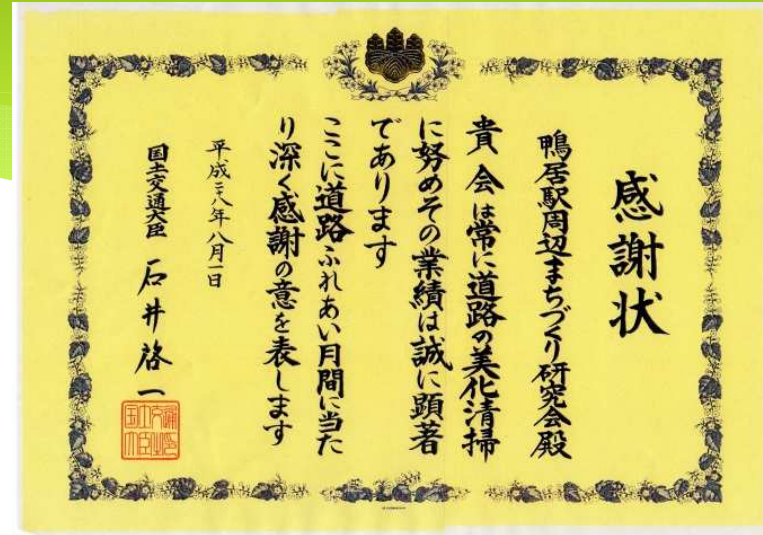 感謝状
鴨居駅周辺まちづくり研究会殿
貴会は常に道路の美化清掃
に努めその業績は誠に顕著
であります
ここに道路ふれあい月間に当た
り深く感謝の意を表します
平成二十八年八月一日
国土交通大臣 石井啓一